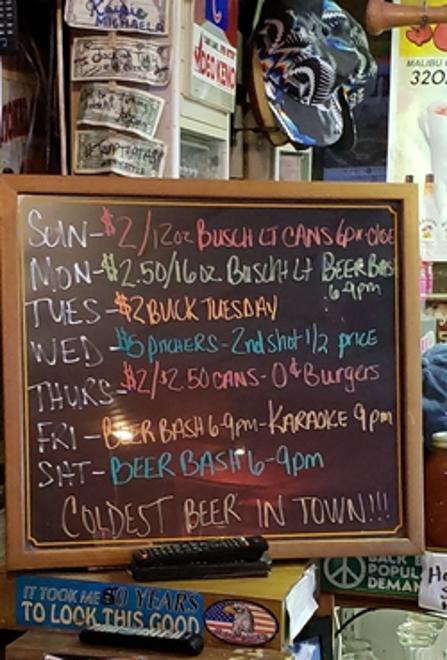 Kaylie
MICHAELA
VIDEO KENO
MALIBU
32O
SUN-$2/12oz BUSCH LT CANS 6pm-close
MON-$2.50/16oz BUSCH LT BEER BAS
6-9pm
TUES-$2 BUCK TUESDAY
WED-$5 PITCHERS-2nd shot 1/2 PRICE
THURS-$2/$2.50 CANS-O& Burgers
FRI-BEER BASH 6-9pm-KARAOKE 9pm
SAT-BEER BASH 6-9pm
COLDEST BEER IN TOWN!!!
BACK B
POPUL
DEMAN
IT TOOK ME 50 YEARS
TO LOOK THIS GOOD